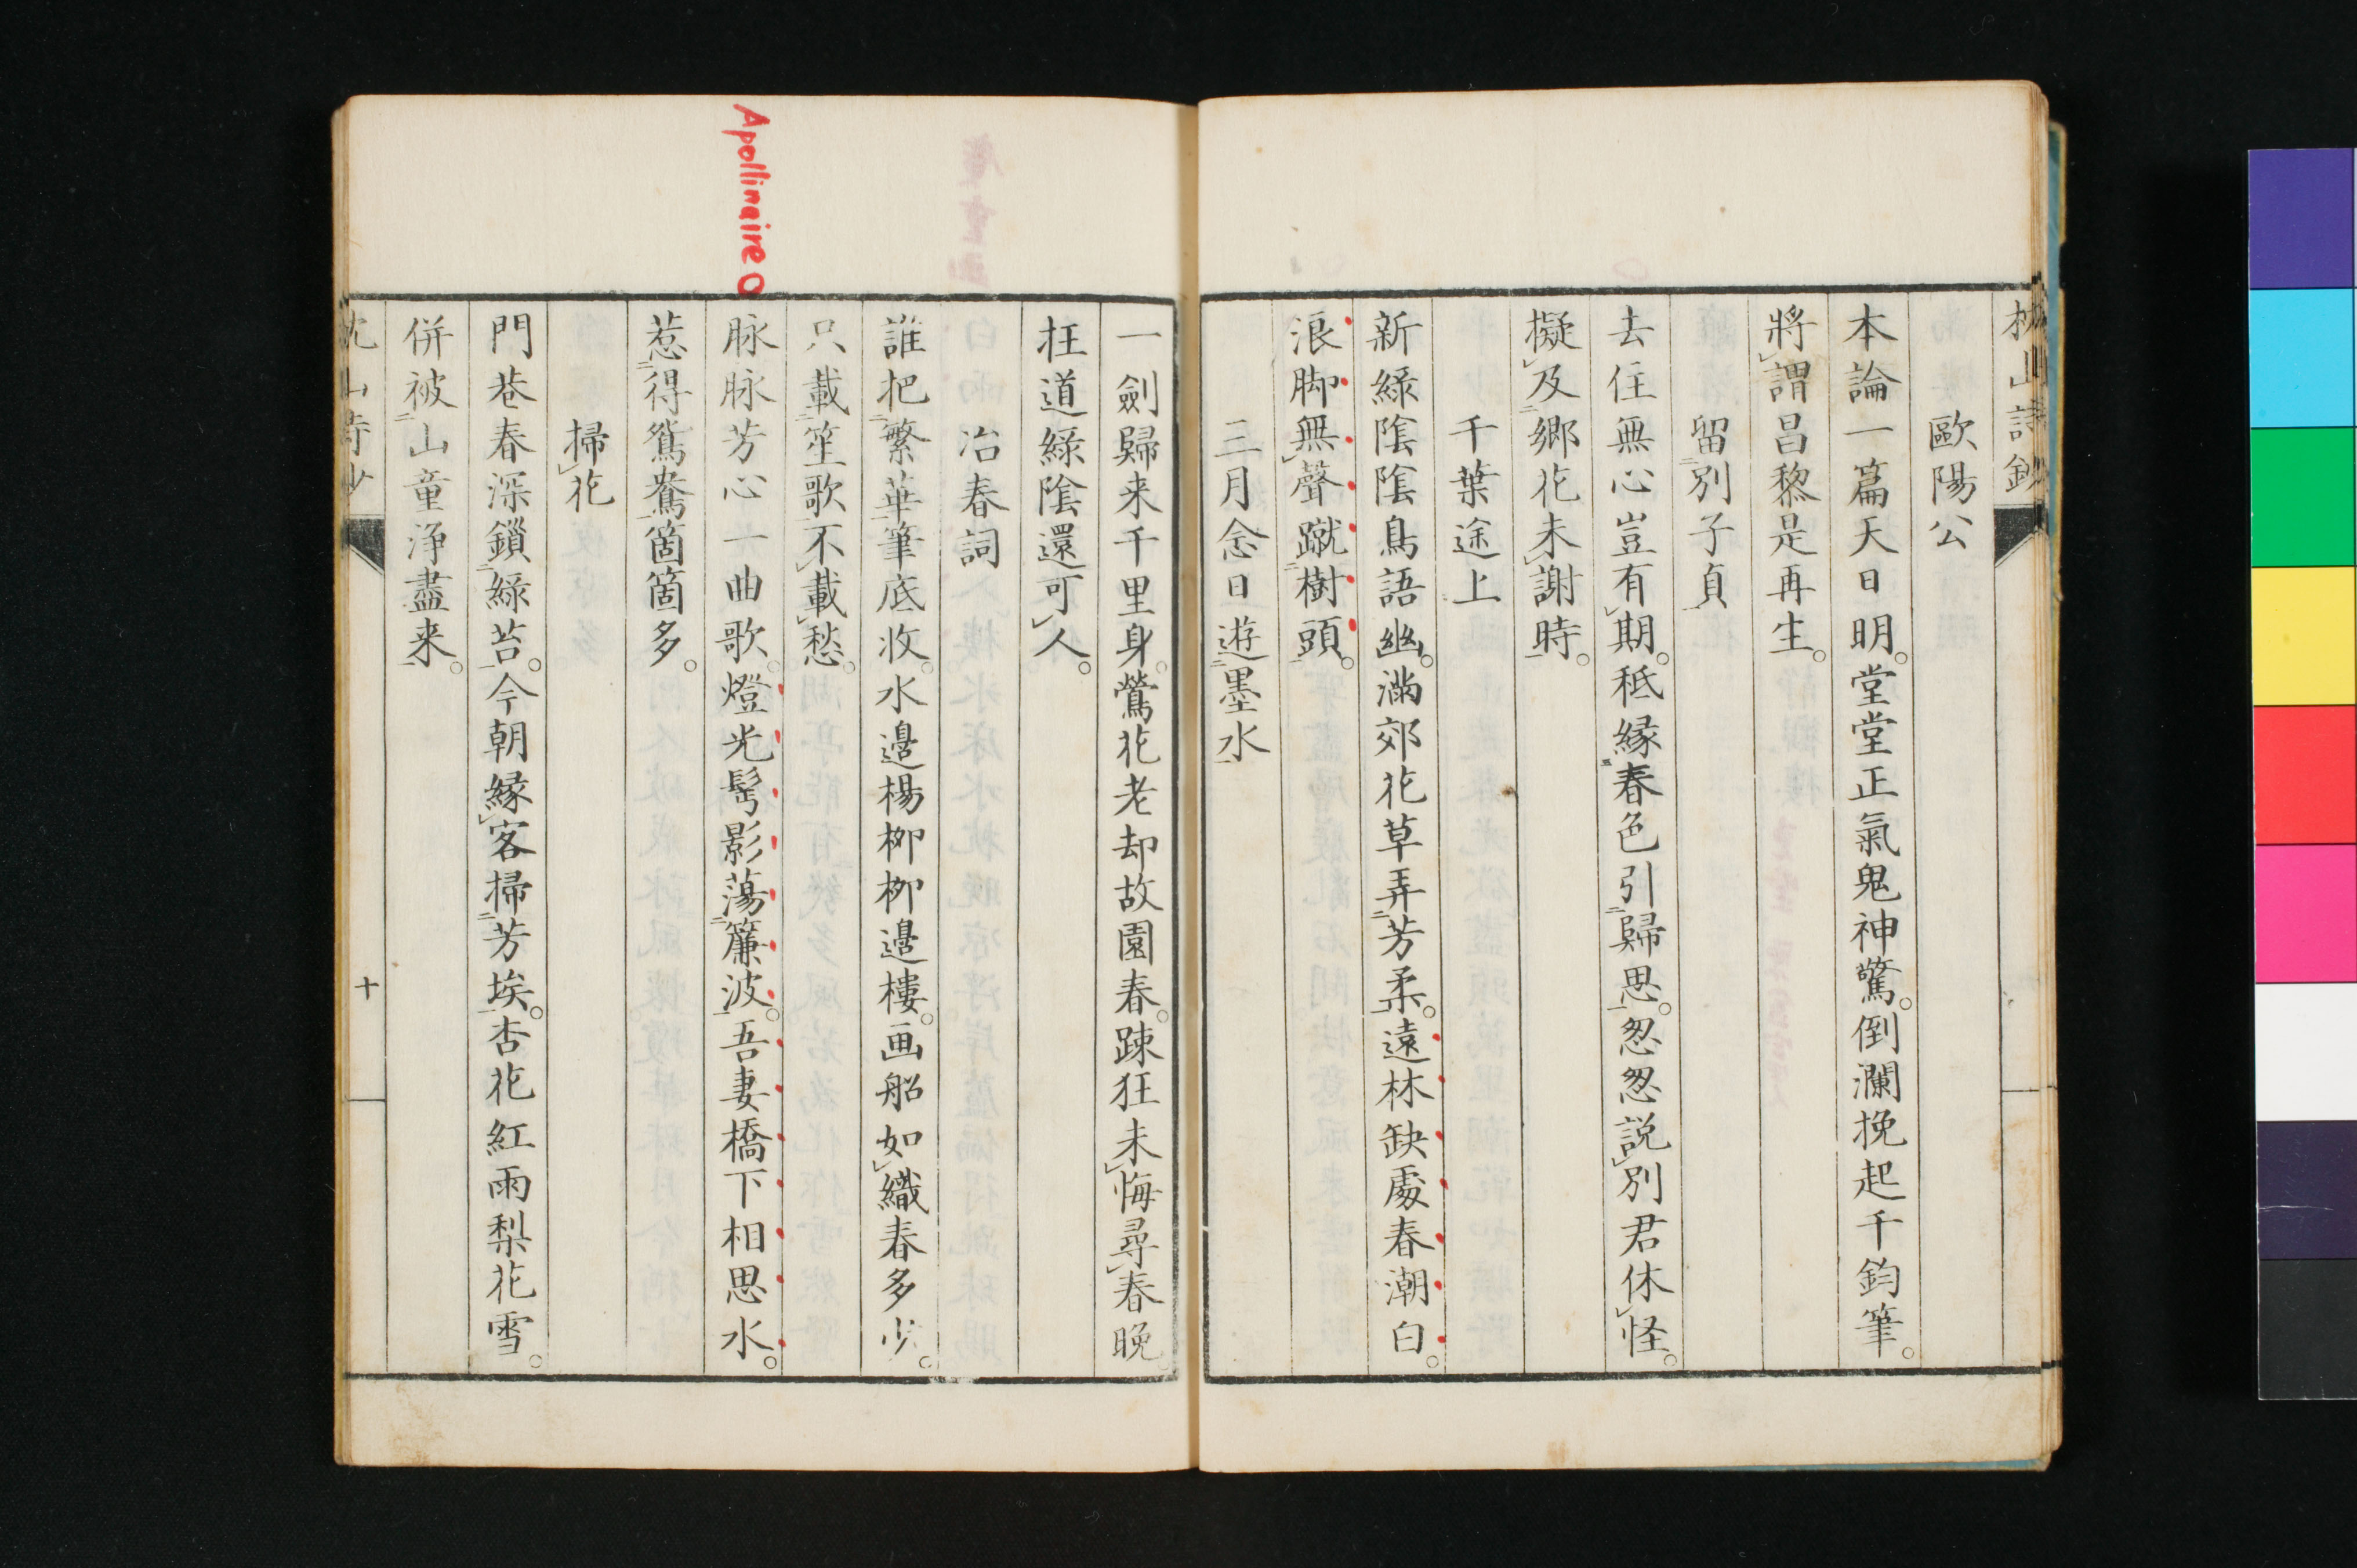 歐陽公
本論一篇天日明。堂堂正氣鬼神驚。倒瀾挽起千鈞筆。
將謂昌黎是再生。
留別子貞
去住無心豈有期。秪緣春色引歸思。忽忽説別君休怪。
擬及郷花未謝時。
千葉途上
新綠陰陰鳥語幽。滿郊花草弄芳柔。遠林缺處春潮白。
浪脚無聲蹴樹頭。
三月念日遊墨水
一劍歸来千里身。鶯花老却故園春。踈狂未悔尋春晚。
枉道綠陰還可人。
冶春詞
誰把繁華筆底收。水邉楊柳柳邉樓。画船如織春多少。
只載笙歌不載愁。
Apollinaire
脉脉芳心一曲歌。燈光髩影蕩簾波。吾妻橋下相思水。
惹得鴛鴦箇箇多。
掃花
門巷春深鎖綠苔。今朝緣客掃芳埃。杏花紅雨梨花雪。
併被山童淨盡来。
十